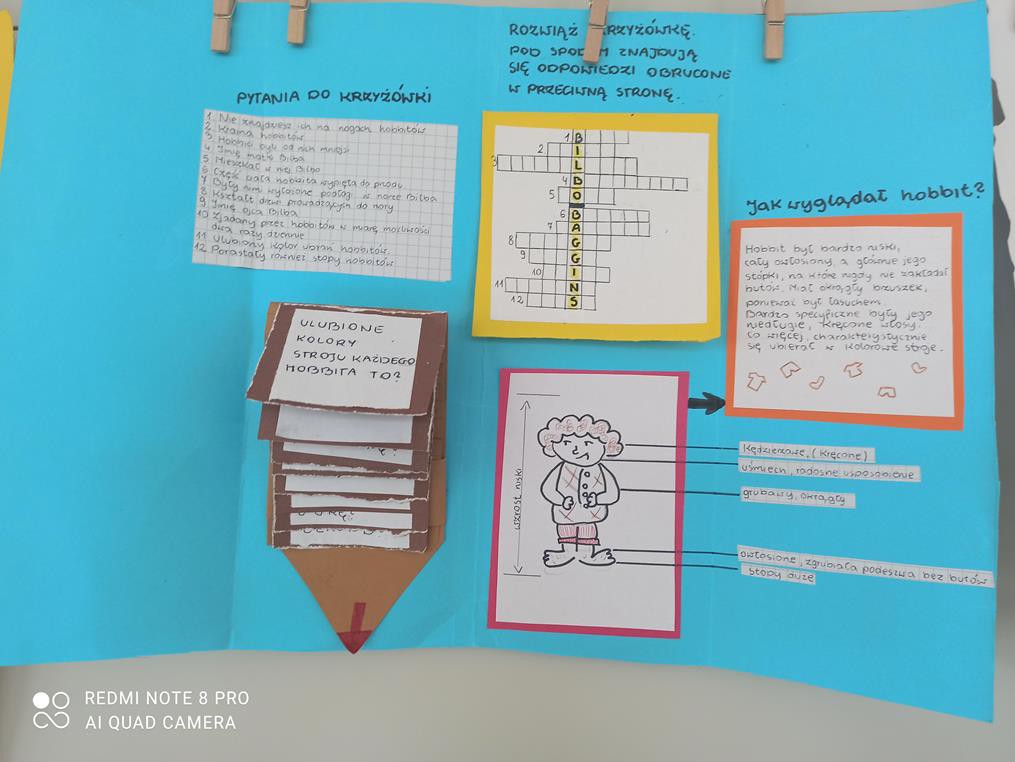 PYTANIA DO KRZYŻÓWKI
1. Nie znajdziesz ich na nogach hobbitów
2 Kraina hobbitów
3. Hobbici byli od nich mniejsi
4. Imię matki Bilba
5 Mieszkał w niej Bilbo
6 Część ciała hobbita wypięta do przodu
7 Były nimi wyłożone podłogi w norze Bilba
8 Kształt drzwi prowadzących do nory
9 Imię ojca Bilba
10 Zjadany przez hobbitów w miarę możliwości
dwa razy dziennie
11 Ulubiony kolor ubrań hobbitów
12 Porastały również stopy hobbitów
ROZWIĄŻ KRZYŻÓWKĘ.
POD SPODEM ZNAJDUJĄ
SIĘ ODPOWIEDZI OBRUCONE
W PRZECIWNĄ STRONĘ.
1 B
2 I
3 L
4 B
5 O
6 B
7 A
8 G
9 G
10 I
11 N
12 S
Jak wyglądał hobbit?
Hobbit był bardzo niski,
cały owłosiony, a głównie jego
stópki, na które nigdy nie zakładał
butów. Miał okrągły brzuszek,
ponieważ był łasuchem.
Bardzo specyficzne były jego
niedługie, kręcone włosy.
Co więcej, charakterystycznie
się ubierał w kolorowe stroje.
ULUBIONE
KOLORY
STROJU KAŻDEGO
HOBBITA TO?
wzrost niski
Kędzierzawe, (kręcone)
uśmiech, radosne usposobienie
grubawy, okrągły
owłosione, zgrubiała podeszwa bez butów
stopy duże
REDMI NOTE 8 PRO
AI QUAD CAMERA